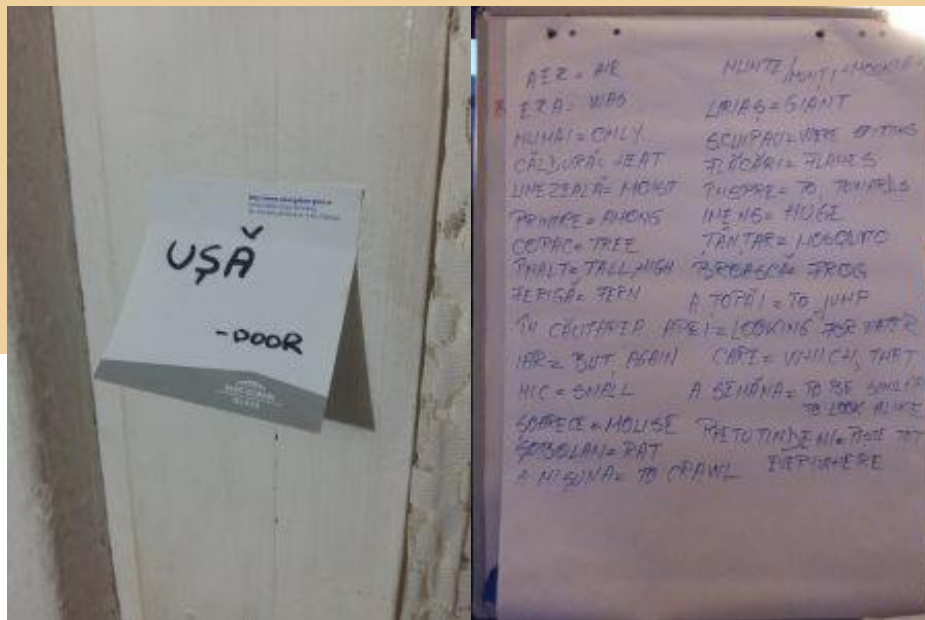 UȘĂ
-DOOR
AER = AIR
ERA = WAS
NUMAI = ONLY
CĂLDURĂ = HEAT
UMEZEALĂ = MOIST
PRINTRE = AMONG
COPAC = TREE
ÎNALT = TALL, HIGH
FERIGĂ = FERN
ÎN CĂUTAREA APEI = LOOKING FOR WATER
IAR = BUT, AGAIN
MIC = SMALL
ȘOARECE = MOUSE
ȘOBOLAN = RAT
A MIȘUNA = TO CRAWL
MUNTE/MUNȚI =
URIAȘ = GIANT
SCUIPAU = WERE SPITTING
FLĂCĂRI = FLAMES
ÎNSPRE = TO, TOWARDS
IMENS = HUGE
ȚÂNȚAR = MOSQUITO
BROASCĂ = FROG
A ȚOPĂI = TO JUMP
CARE = WHICH, THAT
A SEMĂNA = TO BE SIMILAR
TO LOOK ALIKE
PRETUTINDENI = PESTE TOT
EVERYWHERE